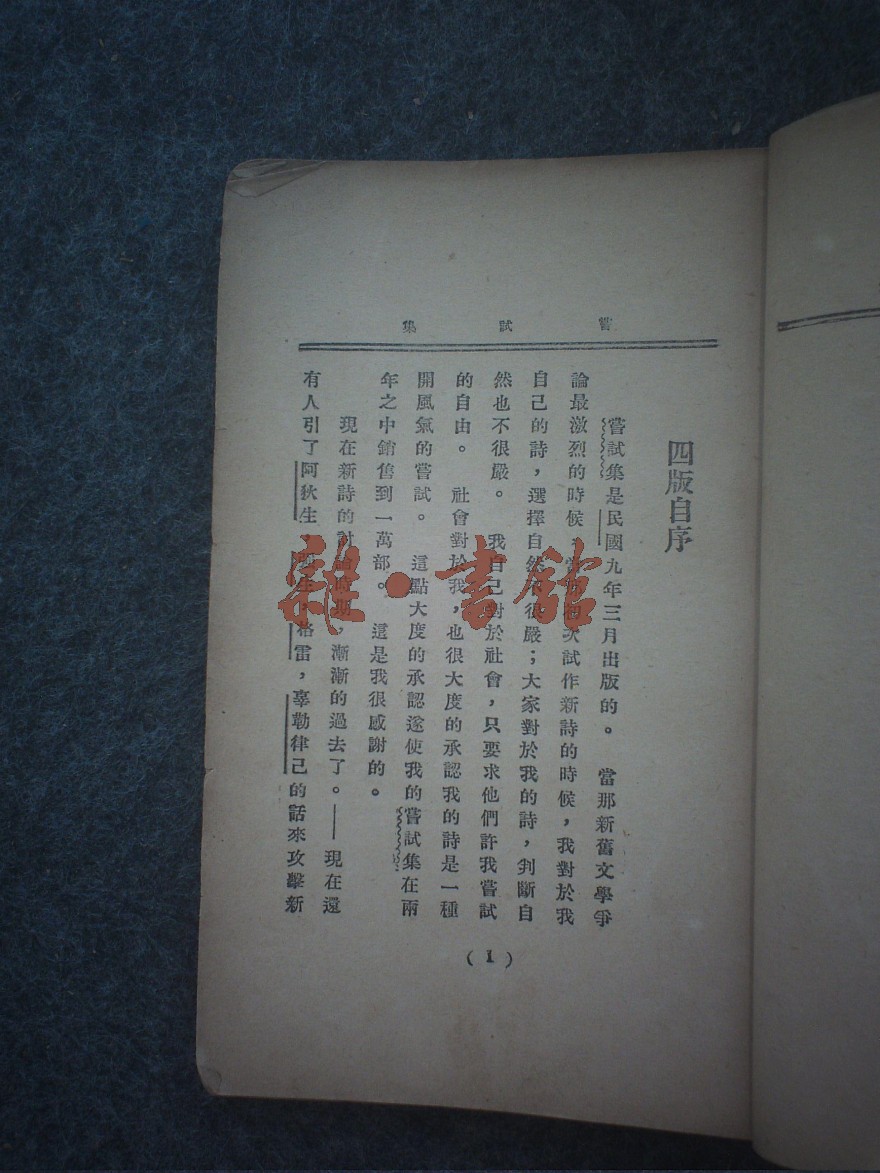 嘗試集
四版自序
嘗試集是民國九年三月出版的。 當那新舊文學爭
論最激烈的時候，當初次試作新詩的時候，我對於我
自己的詩，選擇自然不很嚴；大家對於我的詩，判斷自
然也不很嚴。 我自己對於社會，只要求他們許我嘗試
的自由。 社會對於我，也很大度的承認我的詩是一種
開風氣的嘗試。 這點大度的承認遂使我的嘗試集在兩
年之中銷售到一萬部。 這是我很感謝的。
現在新詩的討論時期，漸漸的過去了。——現在還
有人引了阿狄生，生，格雷，辜勒律己的話來攻擊新
(1)
雜·書館